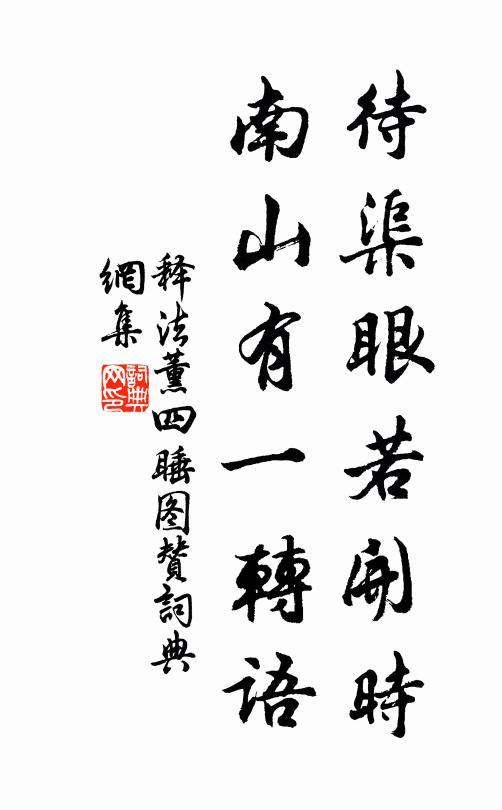 待渠眼若開時
南山有一轉語
释法薰四睡图赞詞典
網集
詞典
网印